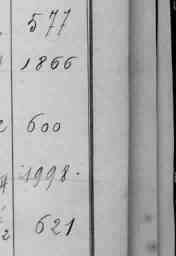 577
1866
600
1998.
621